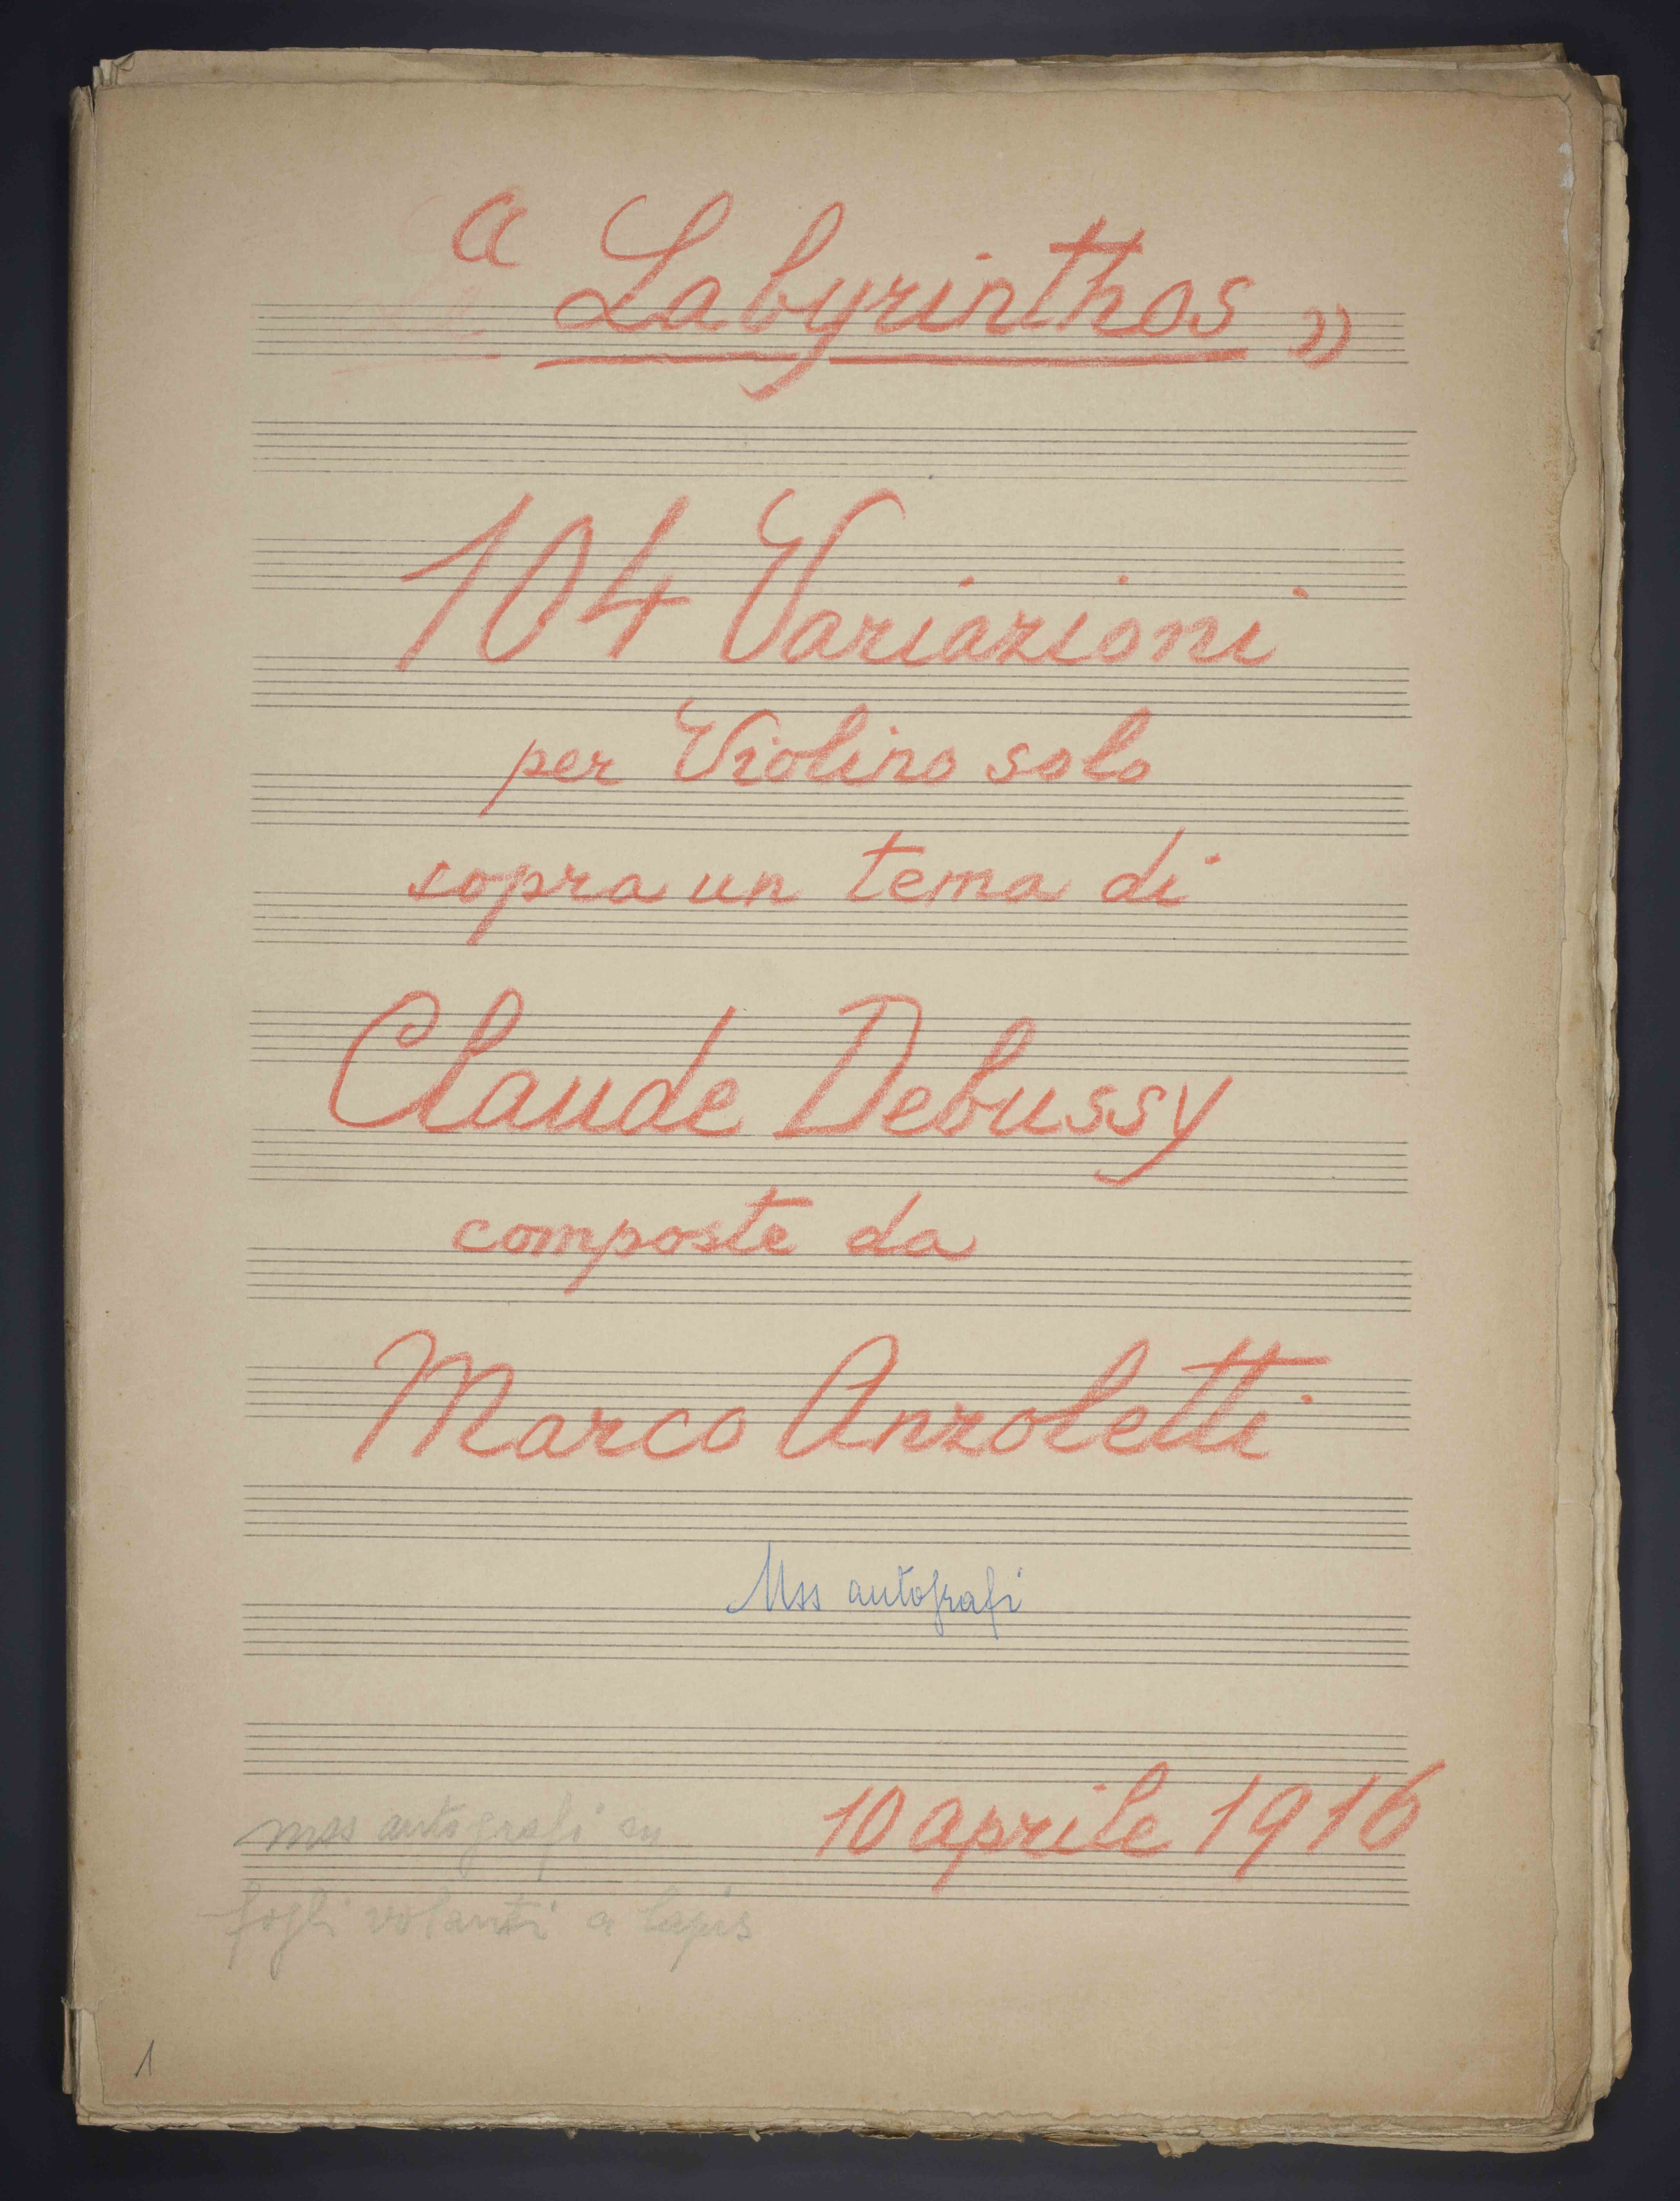 « Labyrinthos »
104 Variazioni
per Violino solo
sopra un tema di
Claude Debussy
composte da
Marco Anzoletti
Mss autografi
10 aprile 1916
mss autografi su
fogli volanti a lapis
1